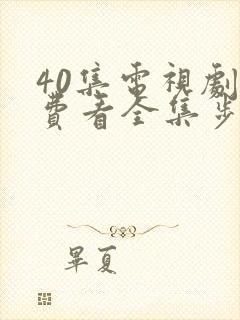 40集電視劇
費看全集步
畢夏